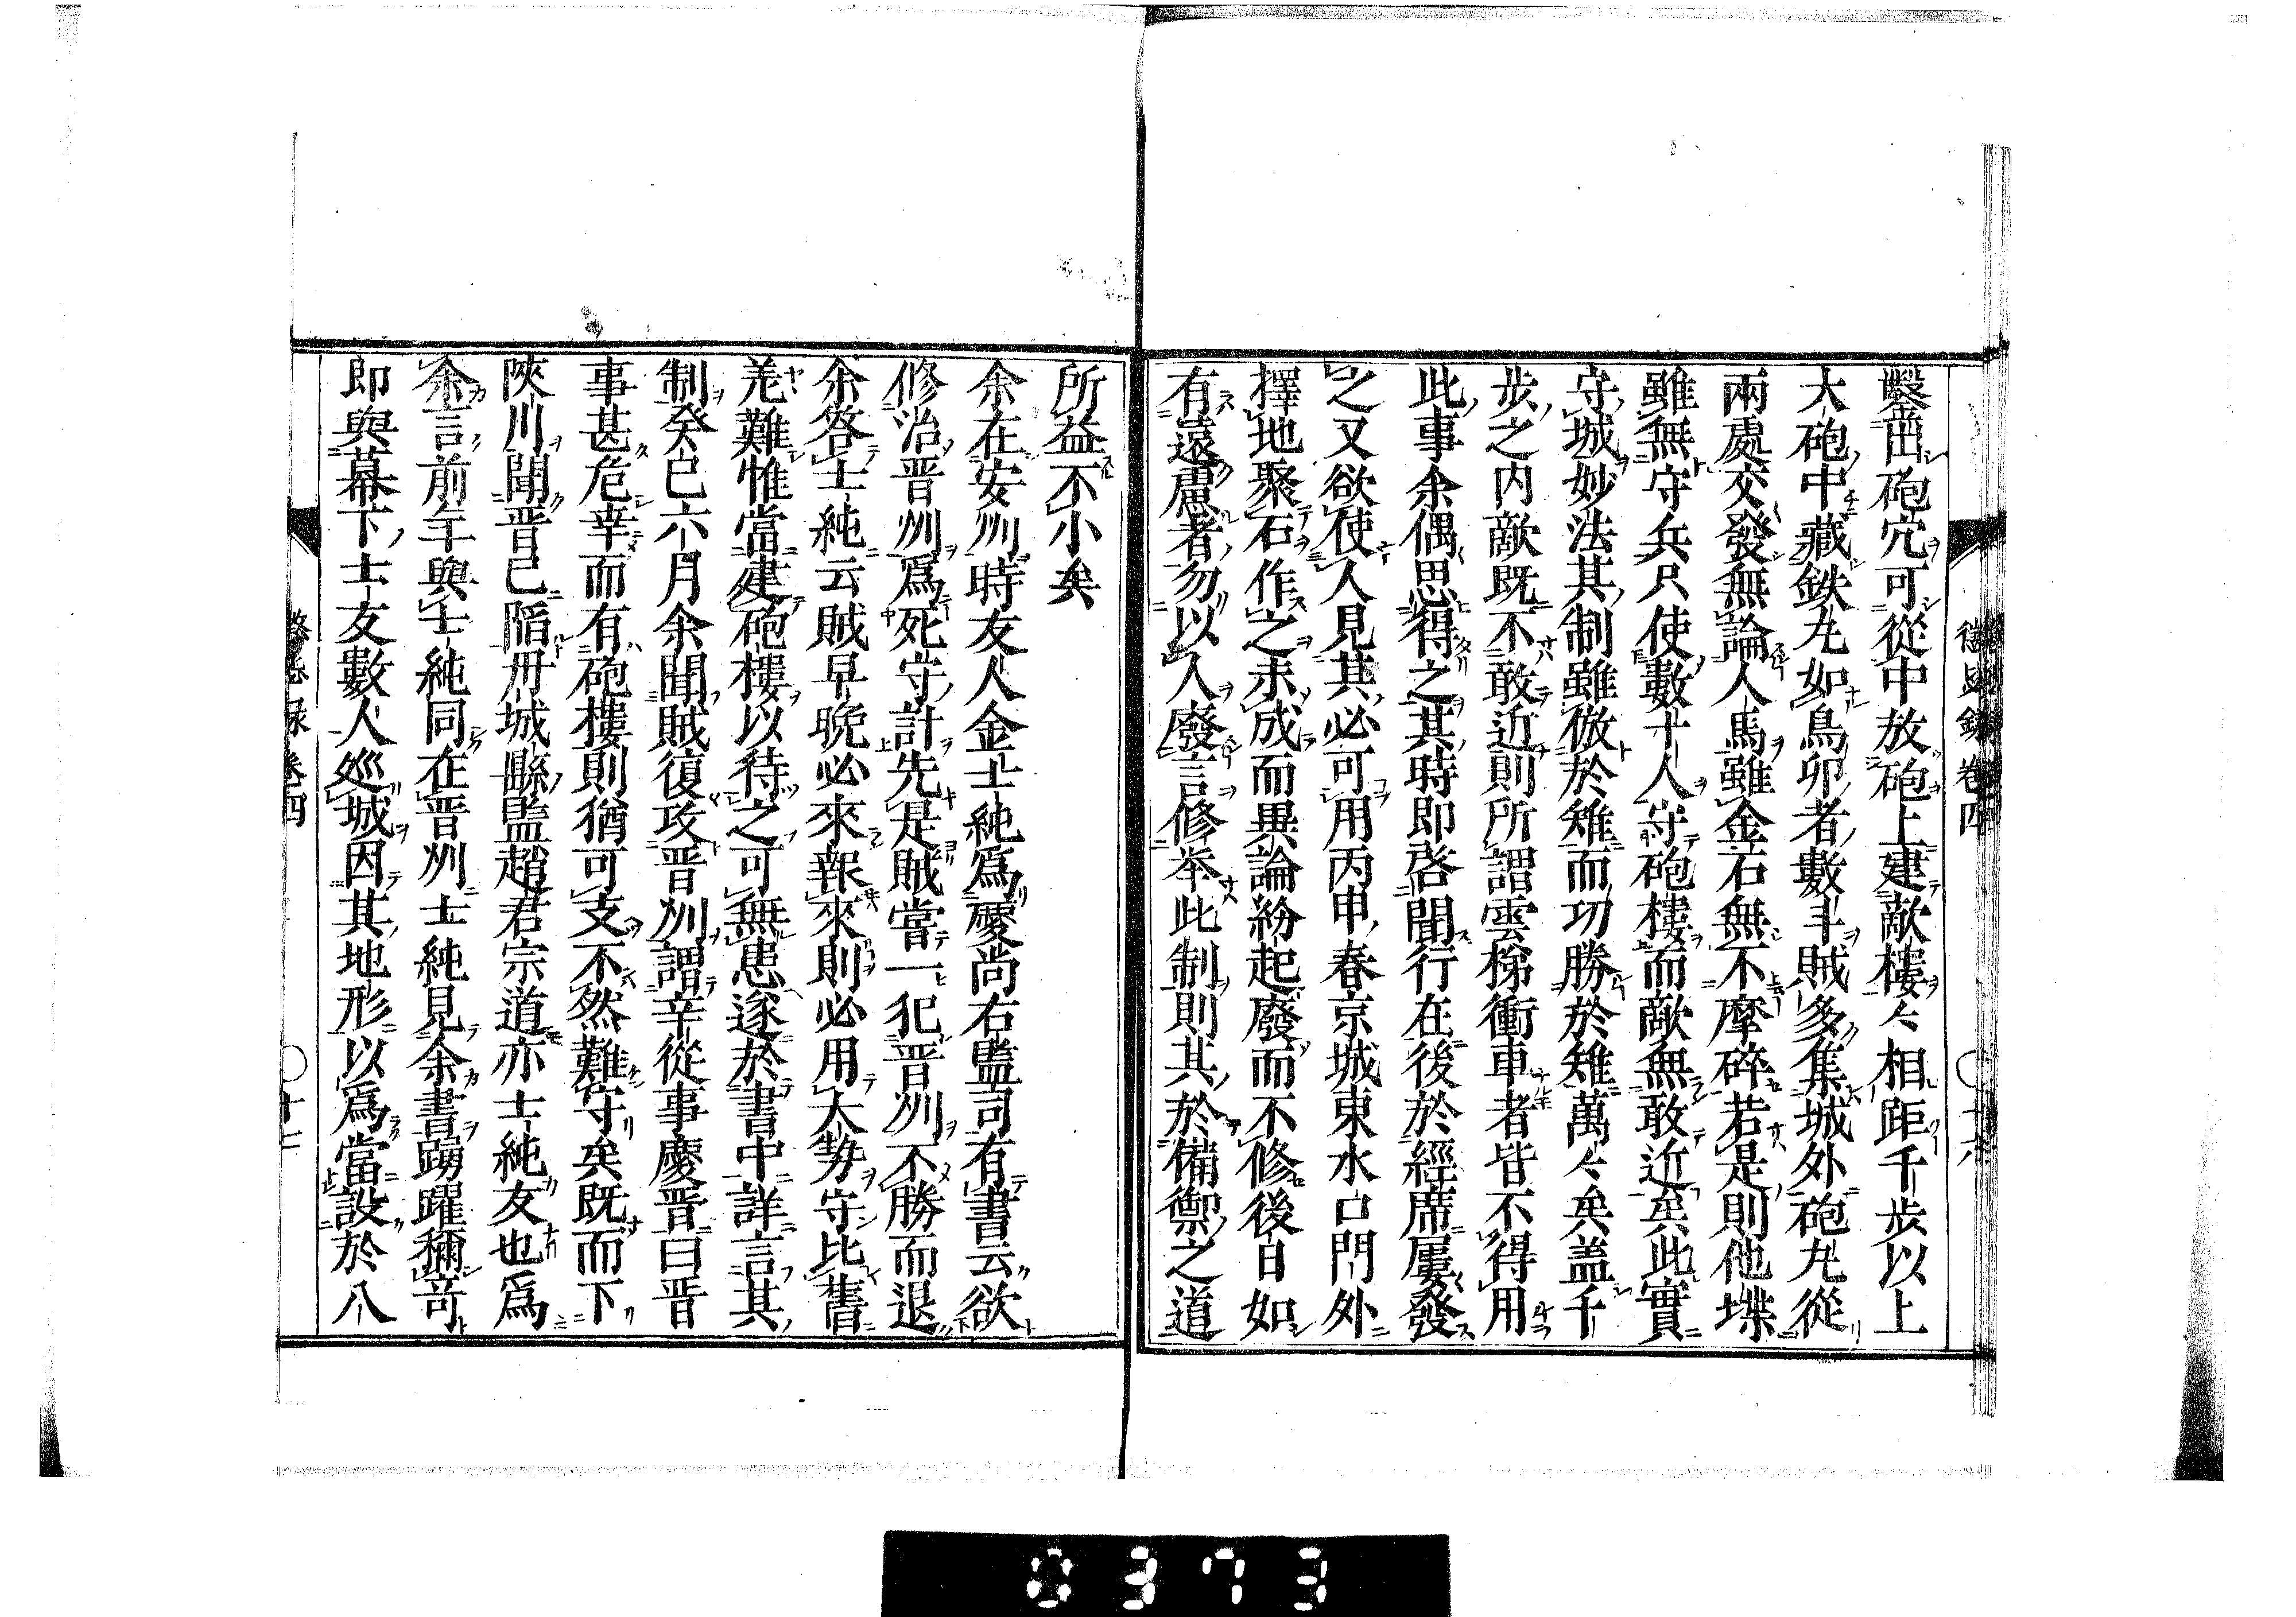 懲毖録卷四
鑿出砲穴可從中放砲上建敵樓々相距千步以上
大砲中藏鉄丸如鳥卵者數斗賊多集城外砲丸從
兩處交發無論人馬雖金石無不摩碎若是則他堞
雖無守兵只使數十人守砲樓而敵無敢近矣此實
守城妙法其制雖倣於雉而功勝於雉萬々矣盖千
步之内敵既不敢近則所謂雲梯衝車者皆不得用
此事余偶思得之其時即啓聞行在後於經席屢發
之又欲使人見其必可用丙申春京城東水口門外
擇地聚石作之未成而異論紛起廢而不修後日如
有遠慮者勿以人廢言修举此制則其於備禦之道
所益不小矣
余在安州時友人金士純爲慶尚右監司有書云欲
修治晋州爲死守計先是賊嘗一犯晋州不勝而退
余答士純云賊早晩必來報來則必用大勢守比舊
羌難惟當建砲樓以待之可無患遂於書中詳言其
制癸巳六月余聞賊復攻晋州謂辛從事慶晋曰晋
事甚危幸而有砲樓則猶可支不然難守矣既而下
陜川聞晋已陷丹城縣監趙君宗道亦士純友也爲
余言前年與士純同在晋州士純見余書踴躍稱竒
即與幕下士友數人巡城因其地形以爲當設於八
懲毖録卷四
十七
0373